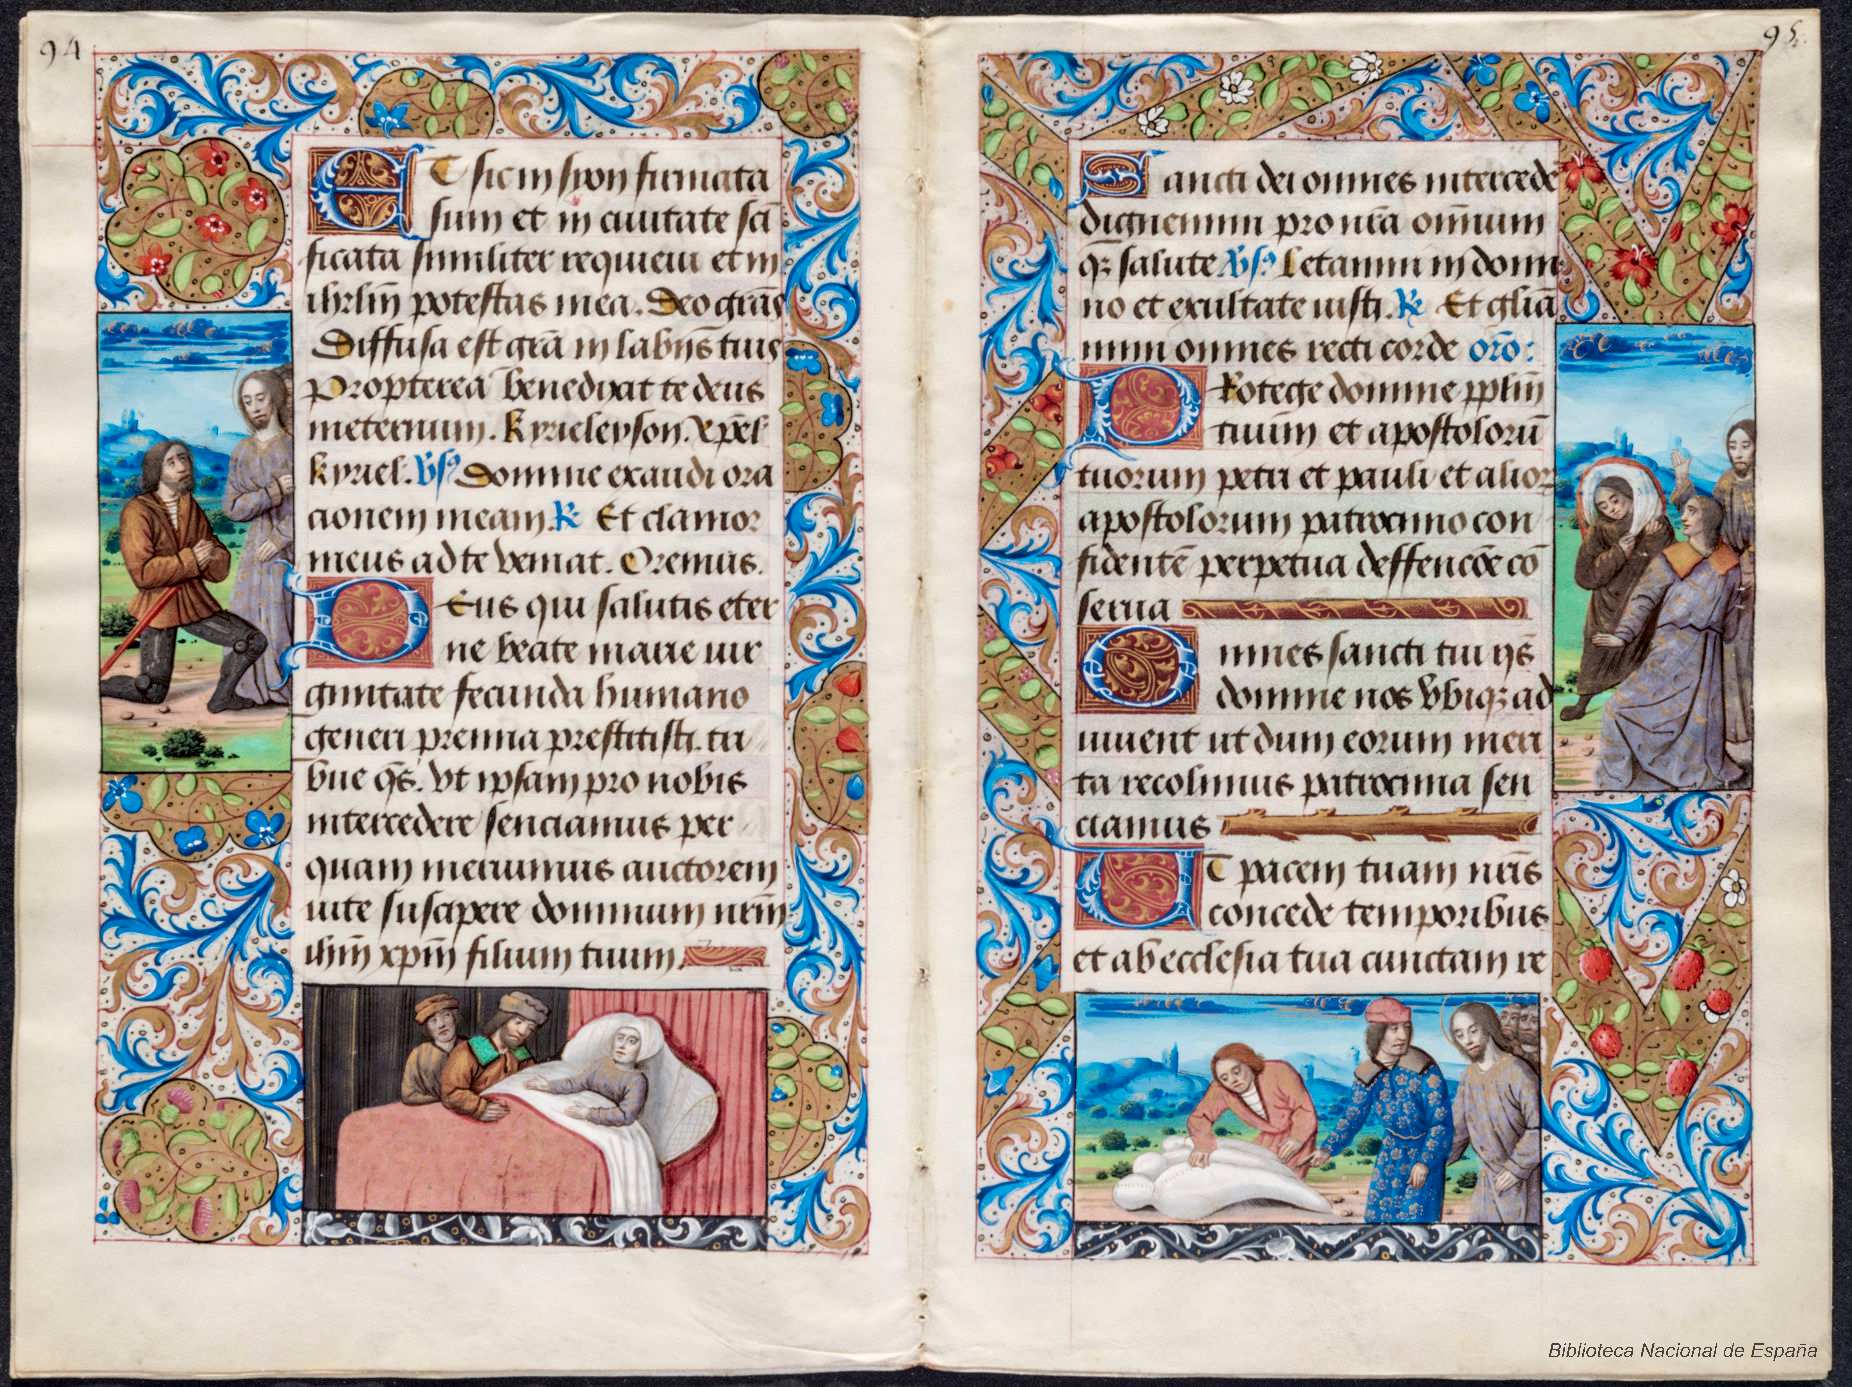 94
ET sic in syon firmata
sum et in ciuitate scī
ficata similiter requieui et in
ihrlm̄ potestas mea. Deo grās
Diffusa est grā in labijs tuis
Propterea benedixit te deus
ineternum. Kyrieleyson. xp̄el
kyriel. V̄s Domine exaudi ora
cionem meam. R̄ Et clamor
meus ad te veniat. Oremus.
DEus qui salutis eter
ne beate marie uir
ginitate fecunda humano
generi premia prestitisti. tri
bue q̄s. vt ipsam pro nobis
intercedere senciamus per
quam meruimus auctorem
uite suscipere dominum nrm̄
ihm̄ xpm̄ filium tuum.
95.
Sancti dei omnes intercede
dignemini pro nrā omnium
q3 salute V̄s Letamini in domi
no et exultate iusti. R̄ Et gliā
mini omnes recti corde oro:
PRotege domine pplm̄
tuum et apostolorū
tuorum petri et pauli et alior
apostolorum patrocinio con
fidentē perpetua deffencōe cō
serua
Omnes sancti tui q̄s
domine nos vbiq3 ad
iuuent ut dum eorum meri
ta recolimus patrocinia sen
ciamus
ET pacem tuam nrīs
concede temporibus
et ab ecclesia tua cunctam re
Biblioteca Nacional de España